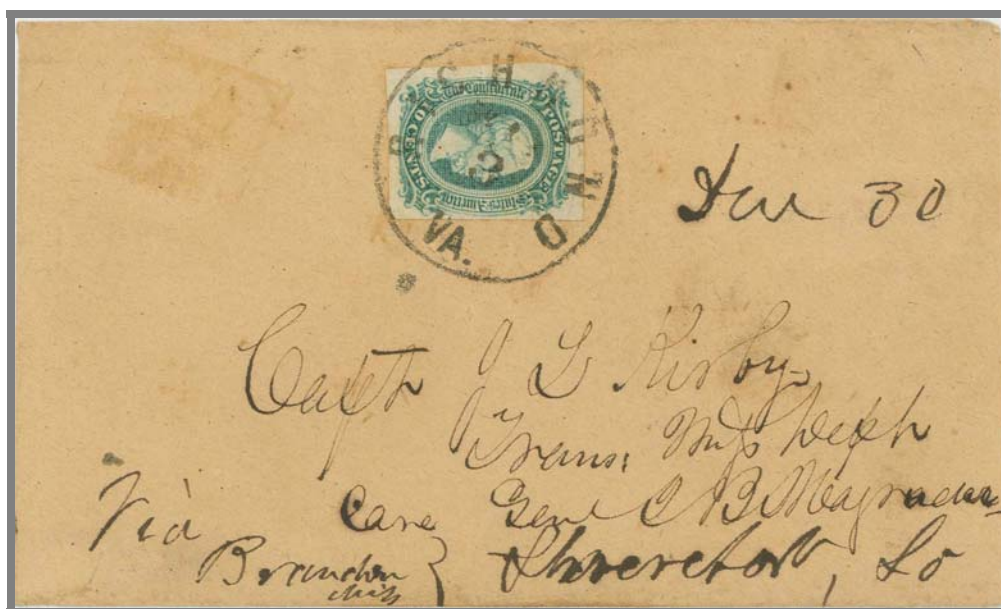 RICHMOND
VA.
3
The Confederate
POSTAGE
States of America
10 CENTS
Due 30
Capt J L Kirby
Trans. Miss Dept
Care Genl J B Magruder
Via
Brandon
Miss
Shreveport, La